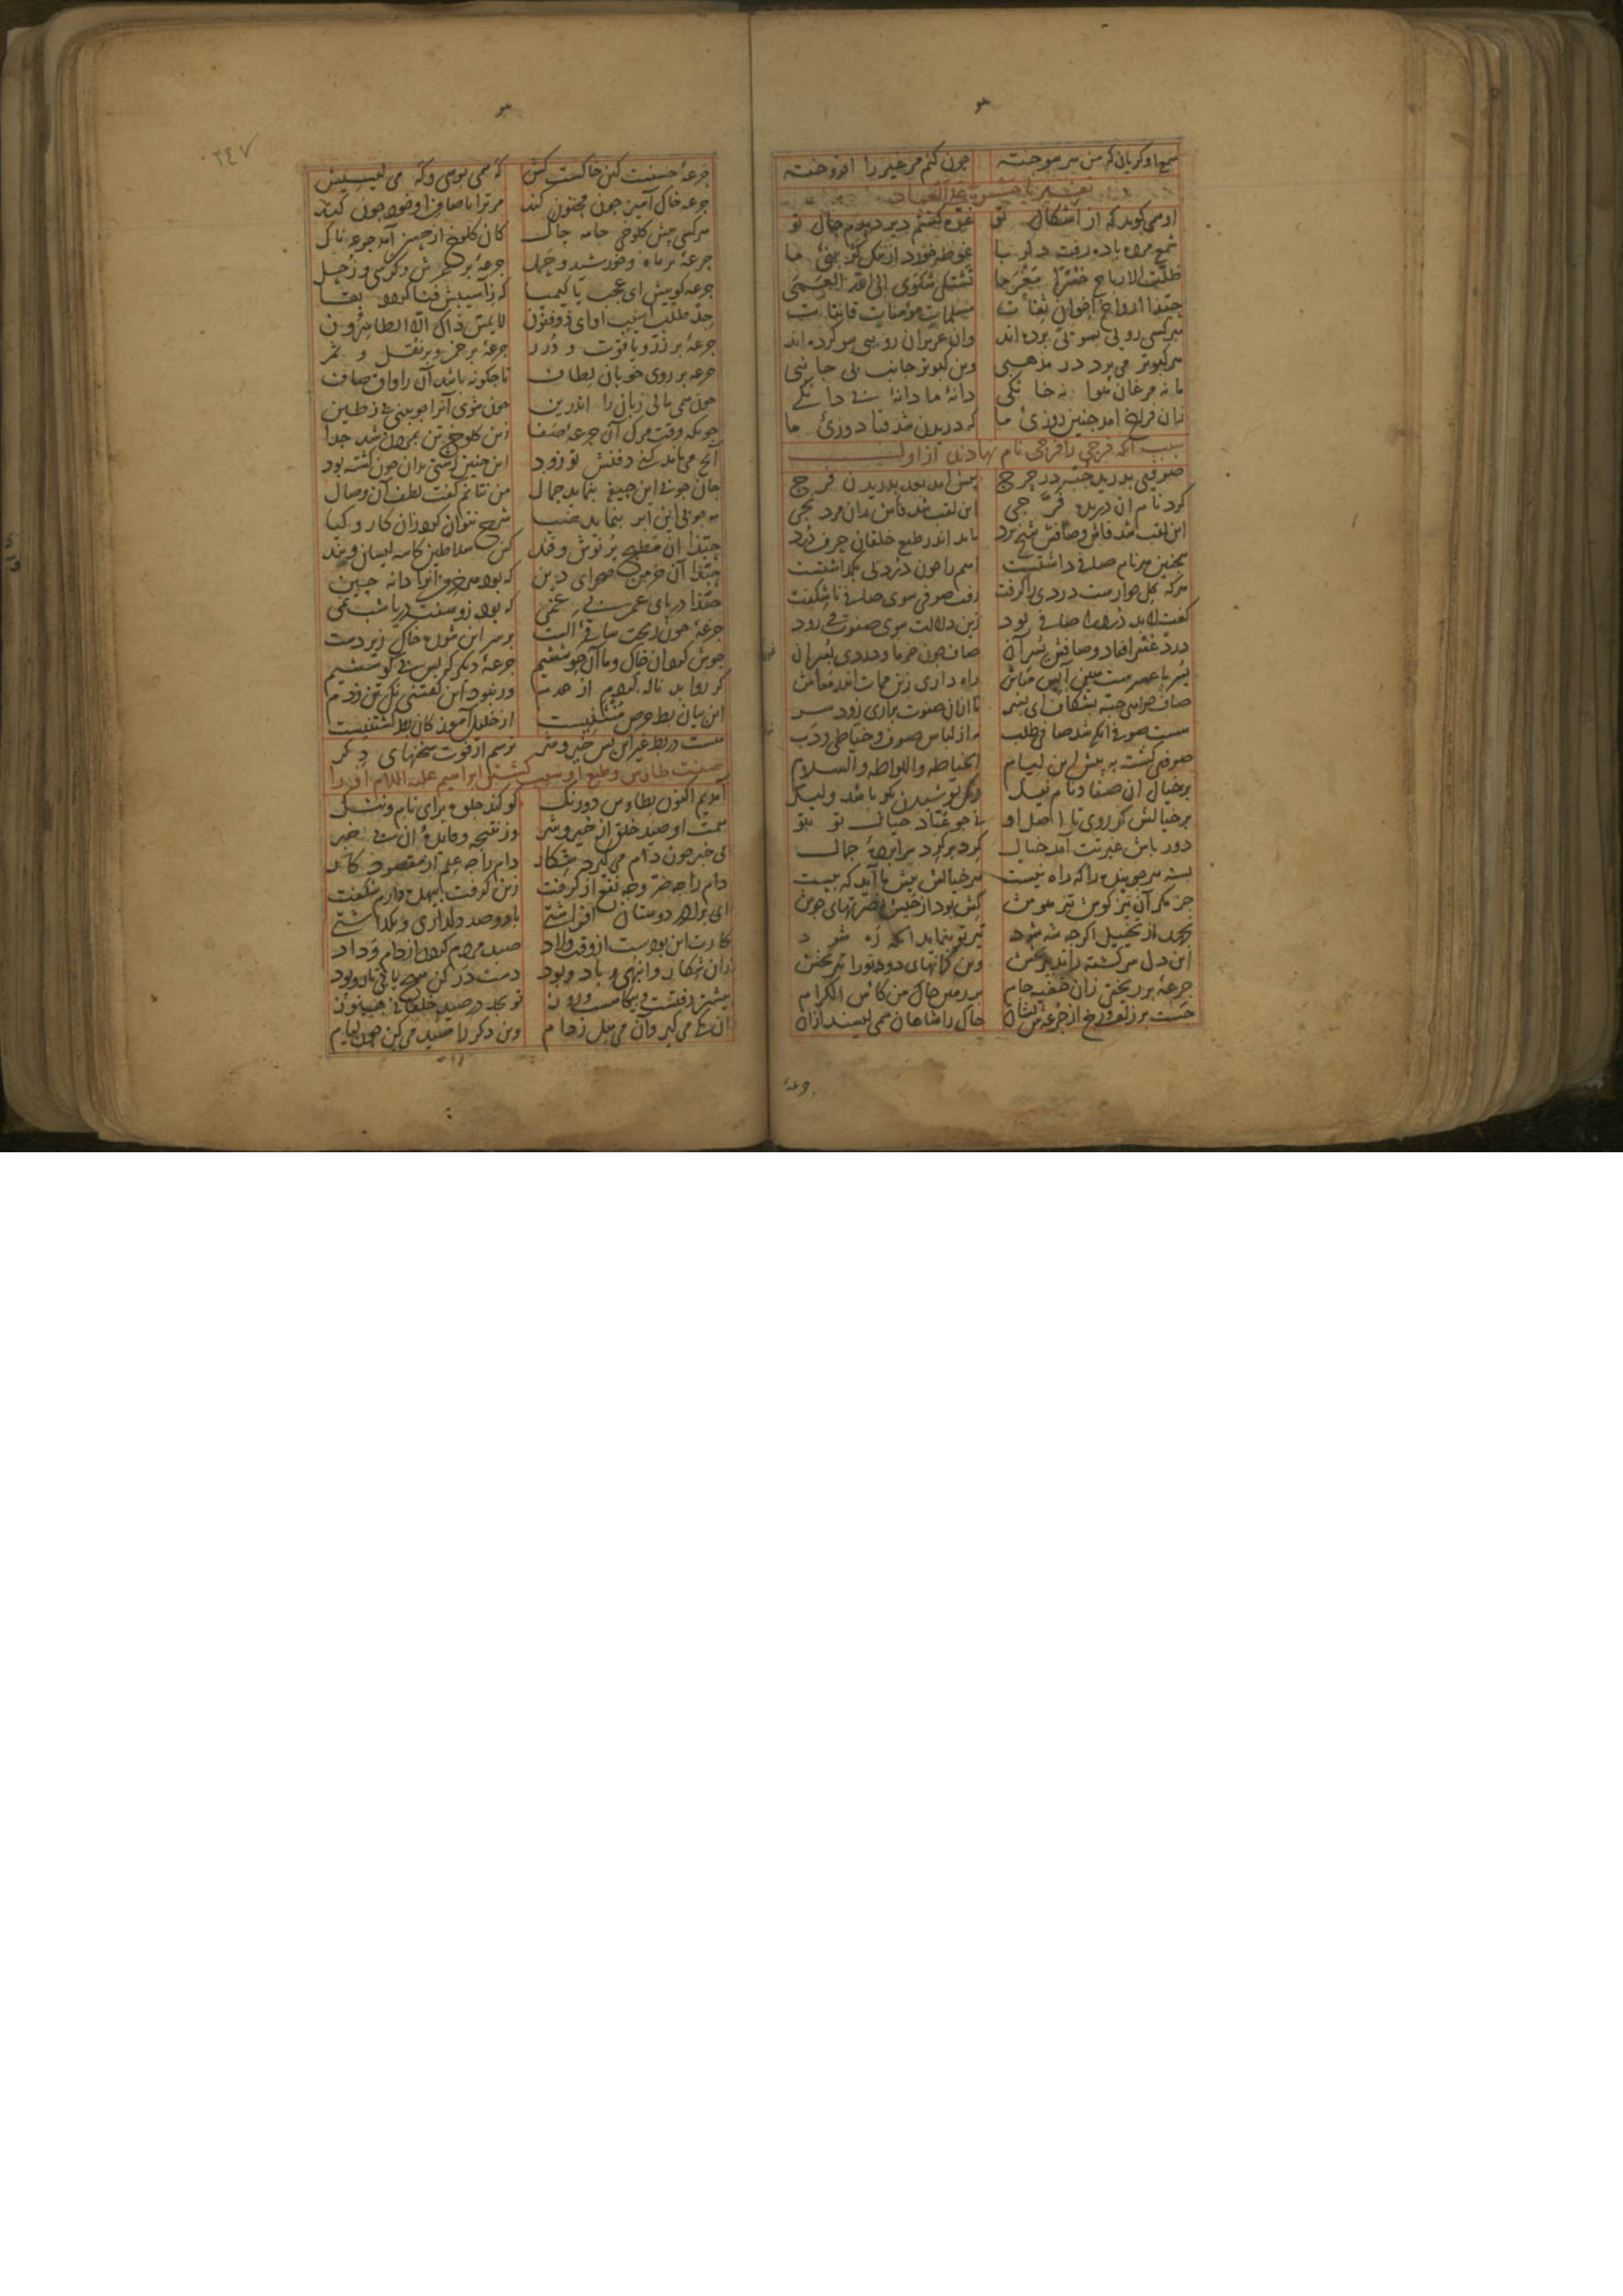 شمع او گریان که من سر سوخته چون کنم مر غیر را افروخته
تفسیر یا حسرة علی العباد
او همی گوید که از اشکال تو غره گشتم دیر دیدم حال تو
شمع مرده باده رفته دلربا غوطه خورد از ننگ کژبینی ما
ظلت الارباح خسرا مغرما نشتکی شکوی الی الله العمی
حبذا ارواح اخوان ثقات مسلمات مؤمنات قانتات
هر کسی رویی بسویی برده اند وان عزیزان رو ببی سو کرده اند
هر کبوتر می پرد در مذهبی وین کبوتر جانب بی جانبی
ما نه مرغان هوا نه خانگی دانهٔ ما دانهٔ بی دانگی
زان فراخ آمد چنین روزی ما که دریدن شد قبادوزی ما
سبب آنکه فرجی را فرجی نام نهادند از اول
صوفیی بدرید جبه در حرج پیشش آمد بعد بدریدن فرج
کرد نام آن دریده فرجی این لقب شد فاش زان مرد نجی
این لقب شد فاش و صافش شیخ برد ماند اندر طبع خلقان حرف درد
همچنین هر نام صافی داشتست اسم را چون دردیی بگذاشتست
هر که گل خوارست دردی را گرفت رفت صوفی سوی صافی ناشکفت
گفت لابد درد را صافی بود زین دلالت سوی صفوت می رود
درد عسر افتاد و صافش یسر آن صاف چون خرما و دردی بسر آن
یسر با عسرست هین آیس مباش راه داری زین ممات اندر معاش
صاف خواهی جبه بشکاف ای پسر تا ازان صفوت براری زود سر
هست صوفی آنکه شد صافی طلب نه از لباس صوف و خیاطی و دب
صوفیی گشته به پیش این لیام الخیاطه واللواطه والسلام
بر خیال آن صفا و نام نیک رنگ پوشیدن نکو باشد ولیک
بر خیالش گر روی تا اصل او نی چو عباد خیال تو بتو
دور باش غیرتت آمد خیال گرد بر گرد سراپردهٔ جمال
بسته هر جوینده را که راه نیست هر خیالش پیش می آید که بیست
جز مگر آن تیزگوش تیزهوش کش بود از جیش نصرتهاش جوش
نجهد از تخییل اگرچه شه شود تیر تو بنماید آنگه ره شود
این دل سرگشته را تدبیر بخش وین کمانهای دوتو را تیر بخش
جرعهٔ بر ریختی زان خفیه جام بر زمین خاک من کاس الکرام
جست بر زلف و رخ از جرعه ش نشان خاک را شاهان همی لیسند ازان
جرعهٔ
٢٤٧
جرعهٔ حسنست کین خاکست کش که همی بوسی و گه می لیسیش
جرعه خاک آمیز چون مجنون کند مر ترا تا صاف او خود چون کند
هر کسی پیش کلوخی جامه چاک کان کلوخ از حسن آمد جرعه ناک
جرعهٔ بر ماه و خورشید و حمل جرعهٔ بر عرش و کرسی و زحل
جرعه گوییش ای عجب یا کیمیا که ز آسیبش فنا گردد بقا
جد طلب آسیب او ای ذوفنون لا یمس ذاک الا الطاهرون
جرعهٔ بر زر و یاقوت و درر جرعهٔ بر خمر و بر نقل و ثمر
جرعه بر روی خوبان لطاف تا چگونه باشد آن راواق صاف
چون همی مالی زبان را اندرین چون شوی آنرا چو بینی بی ز طین
چونکه وقت مرگ آن جرعهٔ صفا زین کلوخ تن بمردن شد جدا
آنچ می ماند کنی دفنش تو زود این چنین زشتی بدان چون گشته بود
جان چو بی این جیفه بنماید جمال من نتانم گفت لطف آن وصال
مه چو بی این ابر بنماید ضیا شرح نتوان کرد زان کار و کیا
حبذا آن مطبخ پر نوش و قند کین سلاطین کاسه لیسان ویند
حبذا آن خرمن صحرای دین که بود هر خرمن آنرا دانه چین
حبذا دریای عمر بی غمی که بود زو هفت دریا شبنمی
جرعهٔ چون ریخت ساقی الست بر سر این شوره خاک زیردست
جوش کرد آن خاک و ما زان جوششیم جرعهٔ دیگر که بس بی کوششیم
گر روا بد ناله کردم از عدم ور نبود این گفتنی نک تن زدم
این بیان بط حرص منثنیست از خلیل آموز کان بط کشتنیست
هست در بط غیر این بس خیر و شر ترسم از فوت سخنهای دگر
صفت طاوس و طبع او و سبب کشتن ابراهیم علیه السلام او را
آمدیم اکنون بطاوس دورنگ کو کند جلوه برای نام و ننگ
همت او صید خلق از خیر و شر وز نتیجه و فایدهٔ آن بی خبر
بی خبر چون دام می گیرد شکار دام را چه علم از مقصود کار
دام را چه ضر و چه نفع از گرفت زین گرفت بیهده ش دارم شگفت
ای برادر دوستان افراشتی با دو صد دلداری و بگذاشتی
کارت این بودست از وقت ولاد صید مردم کردن از دام وداد
زان شکار و انبهی و باد و بود دست در کن هیچ یابی تار و پود
بیشتر رفتست و بیگاهست روز تو بجد در صید خلقانی هنوز
آن یکی می گیر وان می هل ز دام وین دگر را صید می کن چون لیام